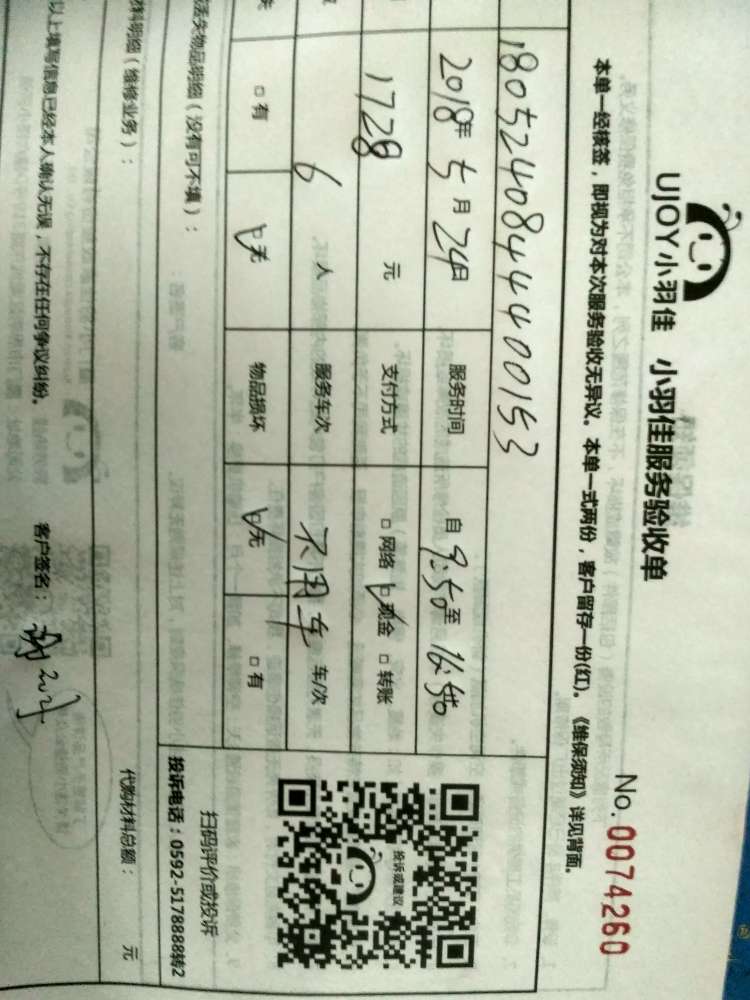 UJOY小羽佳 小羽佳服务验收单
No. 0074260
本单一经核签，即视为对本次服务验收无异议。本单一式两份，客户留存一份(红)。《维保须知》详见背面。
180524084444400153
2018年 5月 24日 服务时间 自 9:50至 16:50
1728 元 支付方式 □ 网络 ☑ 现金 □ 转账
6 人 服务车次 不用车 车/次
□ 有 ☑ 无 物品损坏 ☑ 无 □ 有
丢失物品明细（没有可不填）：
投诉或建议
扫码评价或投诉
投诉电话：0592-5178888转2
材料明细（维修业务）：
代购材料总额： 元
以上填写信息已经本人确认无误，不存在任何争议纠纷。 客户签名：